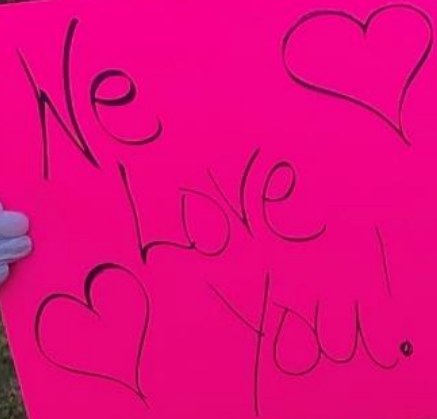 We
Love
You!